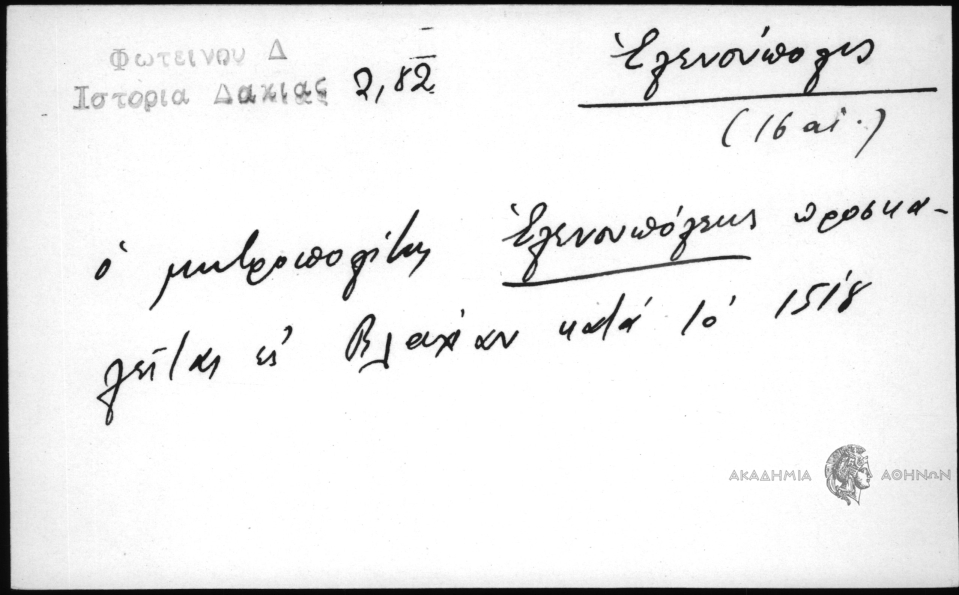 Φωτεινου Δ
Ιστορια Δακιας 2,82
Ἑλενούπολις
(16 αἰ.)
ὁ μητροπολίτης Ἑλενουπόλεως προσκα-
λεῖται εἰς Βλαχίαν κατά τό 1518
ΑΚΑΔΗΜΙΑ ΑΘΗΝΩΝ